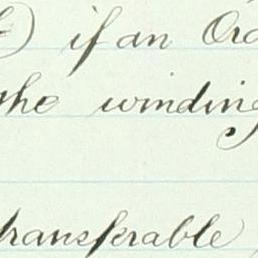 ) if an Ord
the winding
transferable